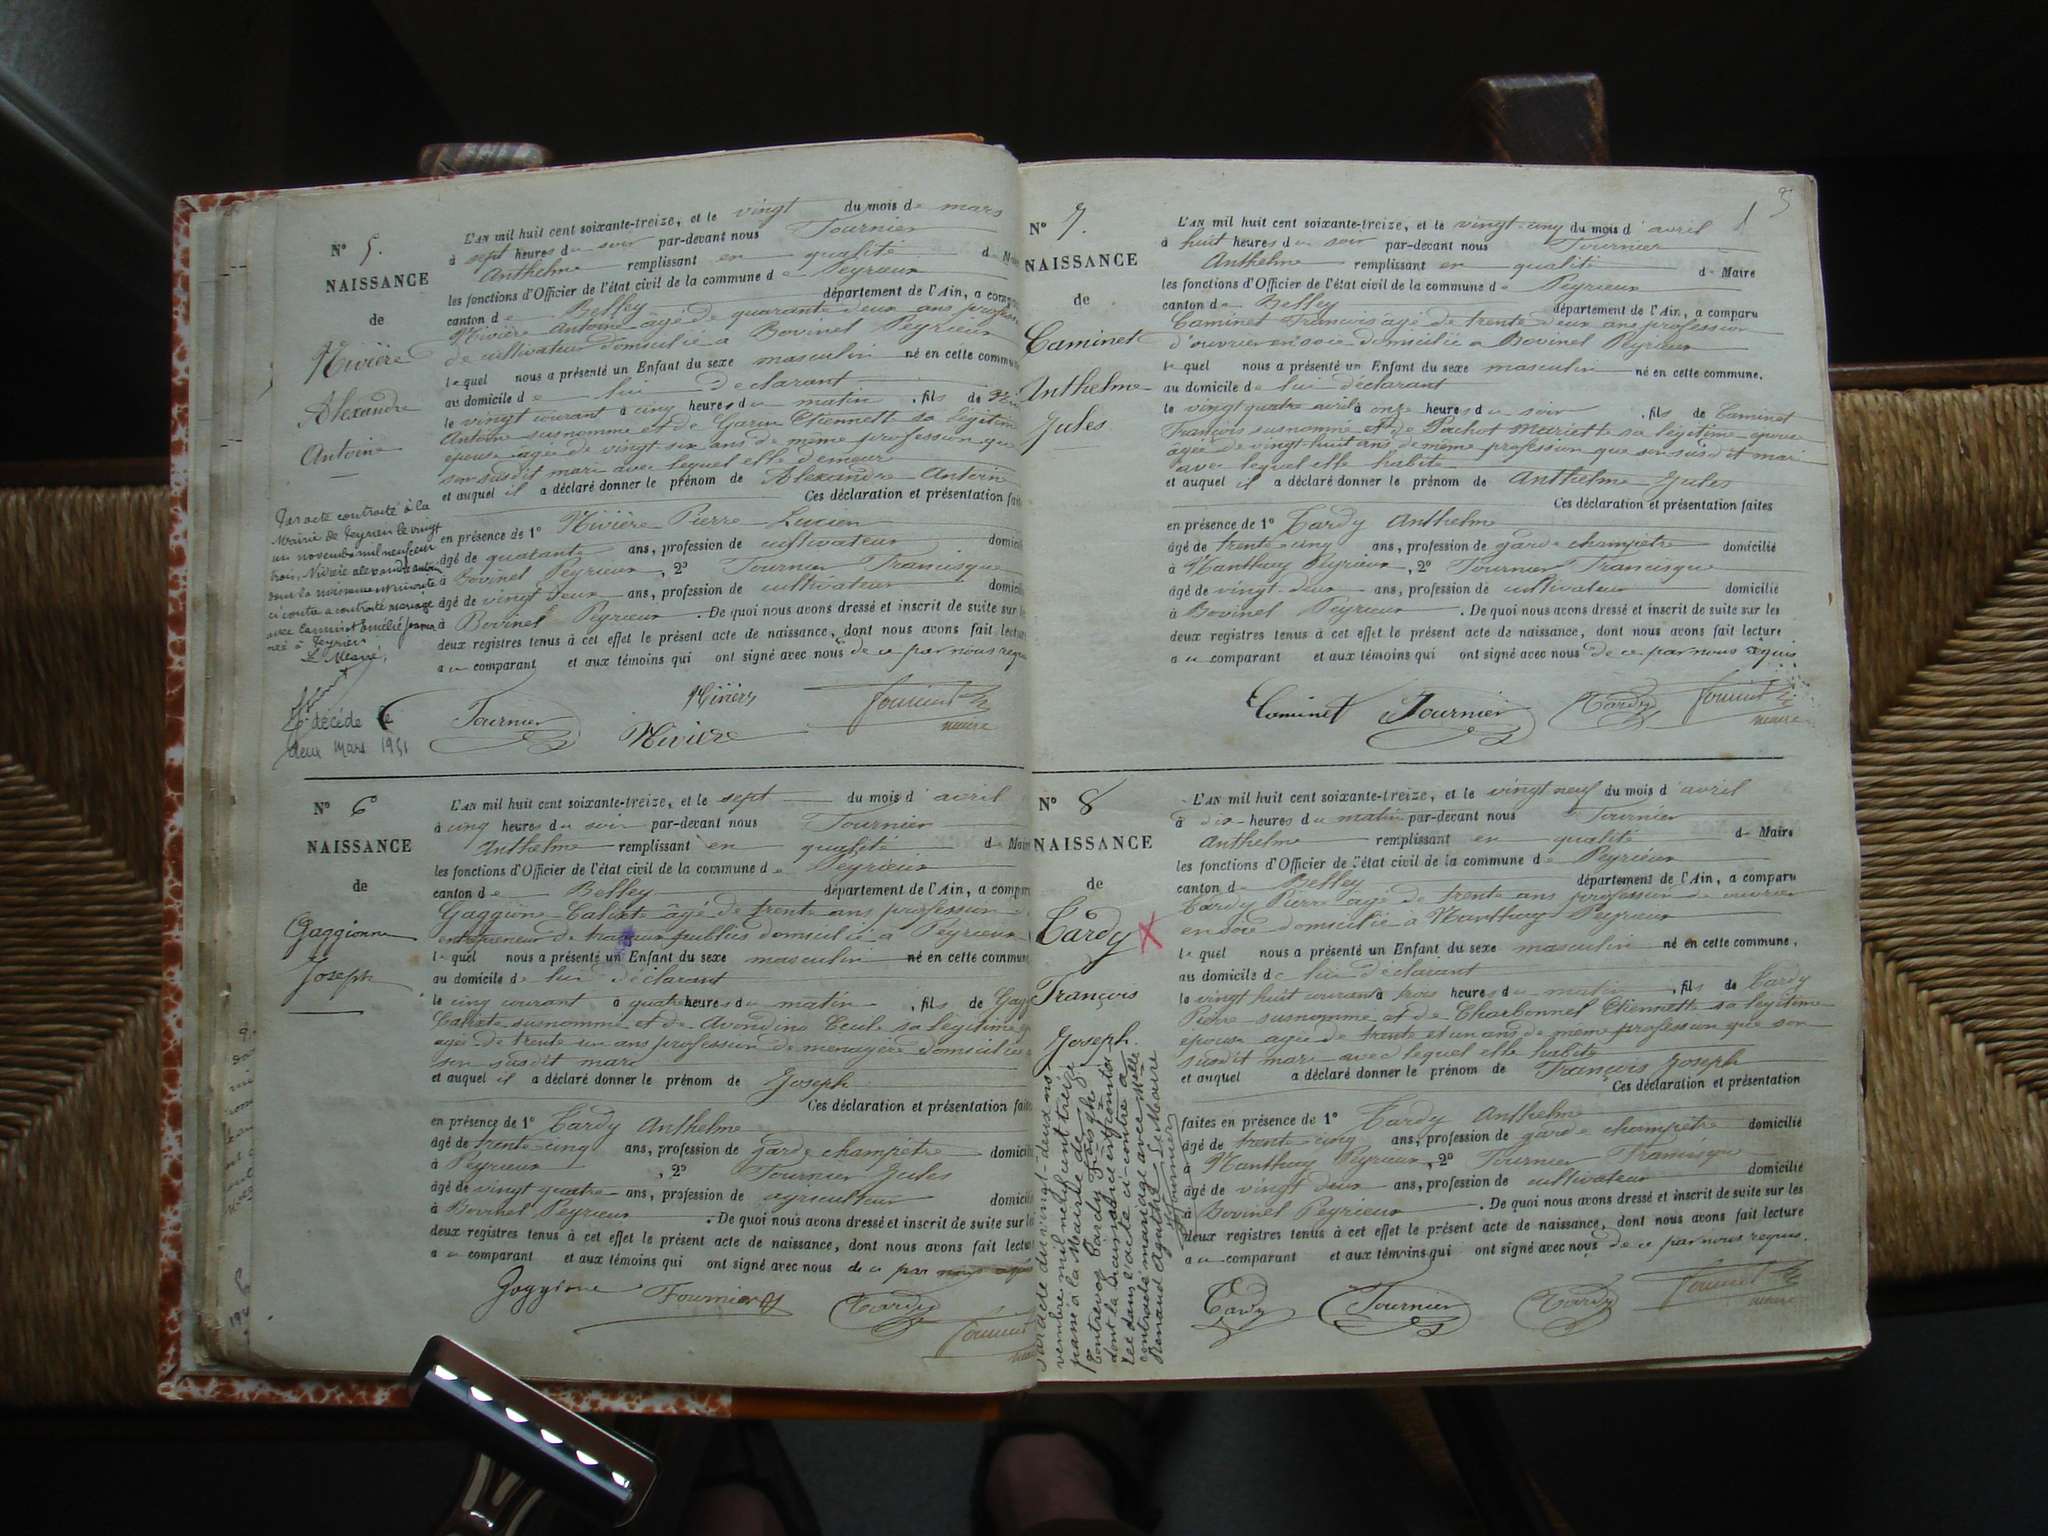 N° 5.
NAISSANCE
de
Nivière
Alexandre
Antoine
Par acte contracté à la
Mairie de Peyrieu le vingt
un novembre mil neuf cent
trois, Nivière alexandre antoine
dont la naissance est inscrite
ci contre a contracté mariage
avec Caminet Emélie
née à Peyrieu
Le Maire,
décédé le
deux mars 1951
L'AN mil huit cent soixante-treize, et le vingt du mois de mars
à sept heures du soir par-devant nous Tournier
Anthelme remplissant en qualité de Maire
les fonctions d'Officier de l'état civil de la commune de Peyrieux
canton de Belley département de l'Ain, a comparu
Nivière Antoine âgé de quarante deux ans profession
de cultivateur domicilié à Bovinel Peyrieux
lequel nous a présenté un Enfant du sexe masculin né en cette commune
au domicile de lui déclarant
le vingt courant à cinq heures du matin, fils de
Antoine susnommé et de Garin Etiennette sa légitime
epouse agée de vingt six ans de même profession que
son susdit mari avec lequel elle demeure
et auquel il a déclaré donner le prénom de Alexandre Antoine
Ces déclaration et présentation faites
en présence de 1° Nivière Pierre Lucien
âgé de quarante ans, profession de cultivateur domicilié
à Bovinel Peyrieux, 2° Tournier Francisque
âgé de vingt deux ans, profession de cultivateur domicilié
à Bovinel Peyrieux. De quoi nous avons dressé et inscrit de suite sur les
deux registres tenus à cet effet le présent acte de naissance, dont nous avons fait lecture
au comparant et aux témoins qui ont signé avec nous de ce par nous requis
Nivière
Tournier Nivière Tournier
maire
N° 6
NAISSANCE
de
Gaggionne
Joseph
L'AN mil huit cent soixante-treize, et le sept du mois d'avril
à cinq heures du soir par-devant nous Tournier
Anthelme remplissant en qualité de Maire
les fonctions d'Officier de l'état civil de la commune de Peyrieux
canton de Belley département de l'Ain, a comparu
Gaggione Calixte âgé de trente ans profession
entrepreneur de travaux publics domicilié à Peyrieux
lequel nous a présenté un Enfant du sexe masculin né en cette commune
au domicile de lui déclarant
le cinq courant à quatre heures du matin, fils de Gagg
Calixte susnommé et de Avondino Cecile sa légitime
agée de trente un ans profession de menagère domiciliée
son susdit mari
et auquel il a déclaré donner le prénom de Joseph
Ces déclaration et présentation faites
en présence de 1° Tardy Anthelme
âgé de trente-cinq ans, profession de garde champêtre domicilié
à Peyrieux, 2° Tournier Jules
âgé de vingt quatre ans, profession de agriculteur domicilié
à Bovinel Peyrieux. De quoi nous avons dressé et inscrit de suite sur les
deux registres tenus à cet effet le présent acte de naissance, dont nous avons fait lecture
au comparant et aux témoins qui ont signé avec nous de ce par nous requis
Gaggione Tournier Tardy Tournier
N° 7.
NAISSANCE
de
Caminet
Anthelme
Jules
L'AN mil huit cent soixante-treize, et le vingt-cinq du mois d'avril
à huit heures du soir par-devant nous Tournier
Anthelme remplissant en qualité de Maire
les fonctions d'Officier de l'état civil de la commune de Peyrieux
canton de Belley département de l'Ain, a comparu
Caminet François âgé de trente deux ans profession
d'ouvrier en soie domicilié a Bovinel Peyrieux
lequel nous a présenté un Enfant du sexe masculin né en cette commune.
au domicile de lui déclarant
le vingt quatre avril à onze heures du soir, fils de Caminet
François susnommé et de Pochot Mariette sa légitime epouse
agée de vingt-huit ans de même profession que son susdit mari
avec lequel elle habite
et auquel il a déclaré donner le prénom de Anthelme Jules
Ces déclaration et présentation faites
en présence de 1° Tardy Anthelme
âgé de trente-cinq ans, profession de garde champêtre domicilié
à Nanthuy Peyrieux, 2° Tournier Francisque
âgé de vingt-deux ans, profession de cultivateur domicilié
à Bovinel Peyrieux. De quoi nous avons dressé et inscrit de suite sur les
deux registres tenus à cet effet le présent acte de naissance, dont nous avons fait lecture
au comparant et aux témoins qui ont signé avec nous de ce par nous requis
Caminet Tournier Tardy Tournier
maire
N° 8
NAISSANCE
de
Tardy X
François
Joseph.
Par acte du vingt-deux no-
vembre mil neuf cent treize
passé à la Mairie de
Contrevoz Tardy Fçois Jph
dont la naissance est consta-
tée dans l'acte ci-contre a
contracté mariage avec Melle
Renaud Agathe Le Maire
Tournier
L'AN mil huit cent soixante-treize, et le vingt neuf du mois d'avril
à dix heures du matin par-devant nous Tournier
Anthelme remplissant en qualité de Maire
les fonctions d'Officier de l'état civil de la commune de Peyrieux
canton de Belley département de l'Ain, a comparu
Tardy Pierre âgé de trente ans profession de ouvrier
en soie domicilié à Nanthuy Peyrieux
lequel nous a présenté un Enfant du sexe masculin né en cette commune.
au domicile de lui déclarant
le vingt huit courant à trois heures du matin, fils de Tardy
Pierre susnommé et de Charbonnel Etiennette sa légitime
epouse agée de trente et un ans de même profession que son
susdit mari avec lequel elle habite
et auquel a déclaré donner le prénom de François Joseph
Ces déclaration et présentation
faites en présence de 1° Tardy Anthelme
âgé de trente-cinq ans, profession de garde champêtre domicilié
à Nanthuy Peyrieux, 2° Tournier Francisque
âgé de vingt deux ans, profession de cultivateur domicilié
à Bovinel Peyrieux. De quoi nous avons dressé et inscrit de suite sur les
deux registres tenus à cet effet le présent acte de naissance, dont nous avons fait lecture
au comparant et aux témoins qui ont signé avec nous de ce par nous requis.
Tardy Tournier Tardy Tournier
maire